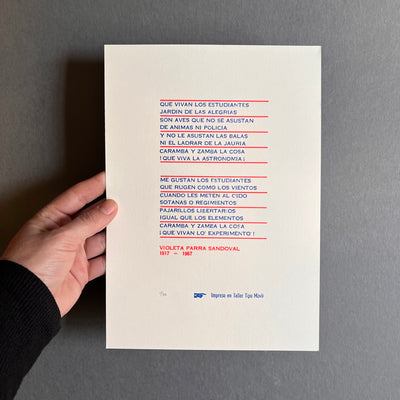 QUE VIVAN LOS ESTUDIANTES
JARDIN DE LAS ALEGRIAS
SON AVES QUE NO SE ASUSTAN
DE ANIMAS NI POLICIA
Y NO LE ASUSTAN LAS BALAS
NI EL LADRAR DE LA JAURIA
CARAMBA Y ZAMBA LA COSA
¡ QUE VIVA LA ASTRONOMIA ¡
ME GUSTAN LOS ESTUDIANTES
QUE RUGEN COMO LOS VIENTOS
CUANDO LES METEN AL OIDO
SOTANAS O REGIMIENTOS
PAJARILLOS LIBERTARIOS
IGUAL QUE LOS ELEMENTOS
CARAMBA Y ZAMBA LA COSA
¡ QUE VIVAN LO' EXPERIMENTO !
VIOLETA PARRA SANDOVAL
1917 - 1967
Impreso en Taller Tipo Móvil